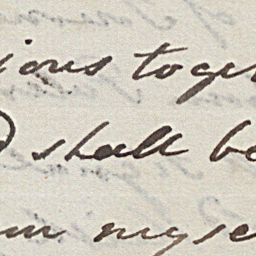 ious toge
shall be
um myse